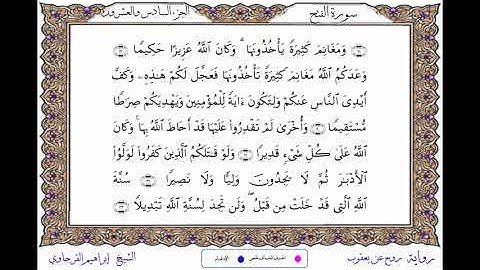 سورة الفتح
الجزء السادس والعشرون
وَمَغَانِمَ كَثِيرَةً يَأْخُذُونَهَا ۗ وَكَانَ اللَّهُ عَزِيزًا حَكِيمًا
وَعَدَكُمُ اللَّهُ مَغَانِمَ كَثِيرَةً تَأْخُذُونَهَا فَعَجَّلَ لَكُمْ هَٰذِهِۦ وَكَفَّ
أَيْدِىَ النَّاسِ عَنكُمْ وَلِتَكُونَ ءَايَةً لِّلْمُؤْمِنِينَ وَيَهْدِيَكُمْ صِرَٰطًا
مُّسْتَقِيمًا وَأُخْرَىٰ لَمْ تَقْدِرُوا۟ عَلَيْهَا قَدْ أَحَاطَ اللَّهُ بِهَا ۚ وَكَانَ
اللَّهُ عَلَىٰ كُلِّ شَىْءٍ قَدِيرًا وَلَوْ قَٰتَلَكُمُ الَّذِينَ كَفَرُوا۟ لَوَلَّوُا۟
الْأَدْبَٰرَ ثُمَّ لَا يَجِدُونَ وَلِيًّا وَلَا نَصِيرًا سُنَّةَ
اللَّهِ الَّتِى قَدْ خَلَتْ مِن قَبْلُ ۖ وَلَن تَجِدَ لِسُنَّةِ اللَّهِ تَبْدِيلًا
رواية روح عن يعقوب
الإدغام
الشيخ إبراهيم الفرجاوي